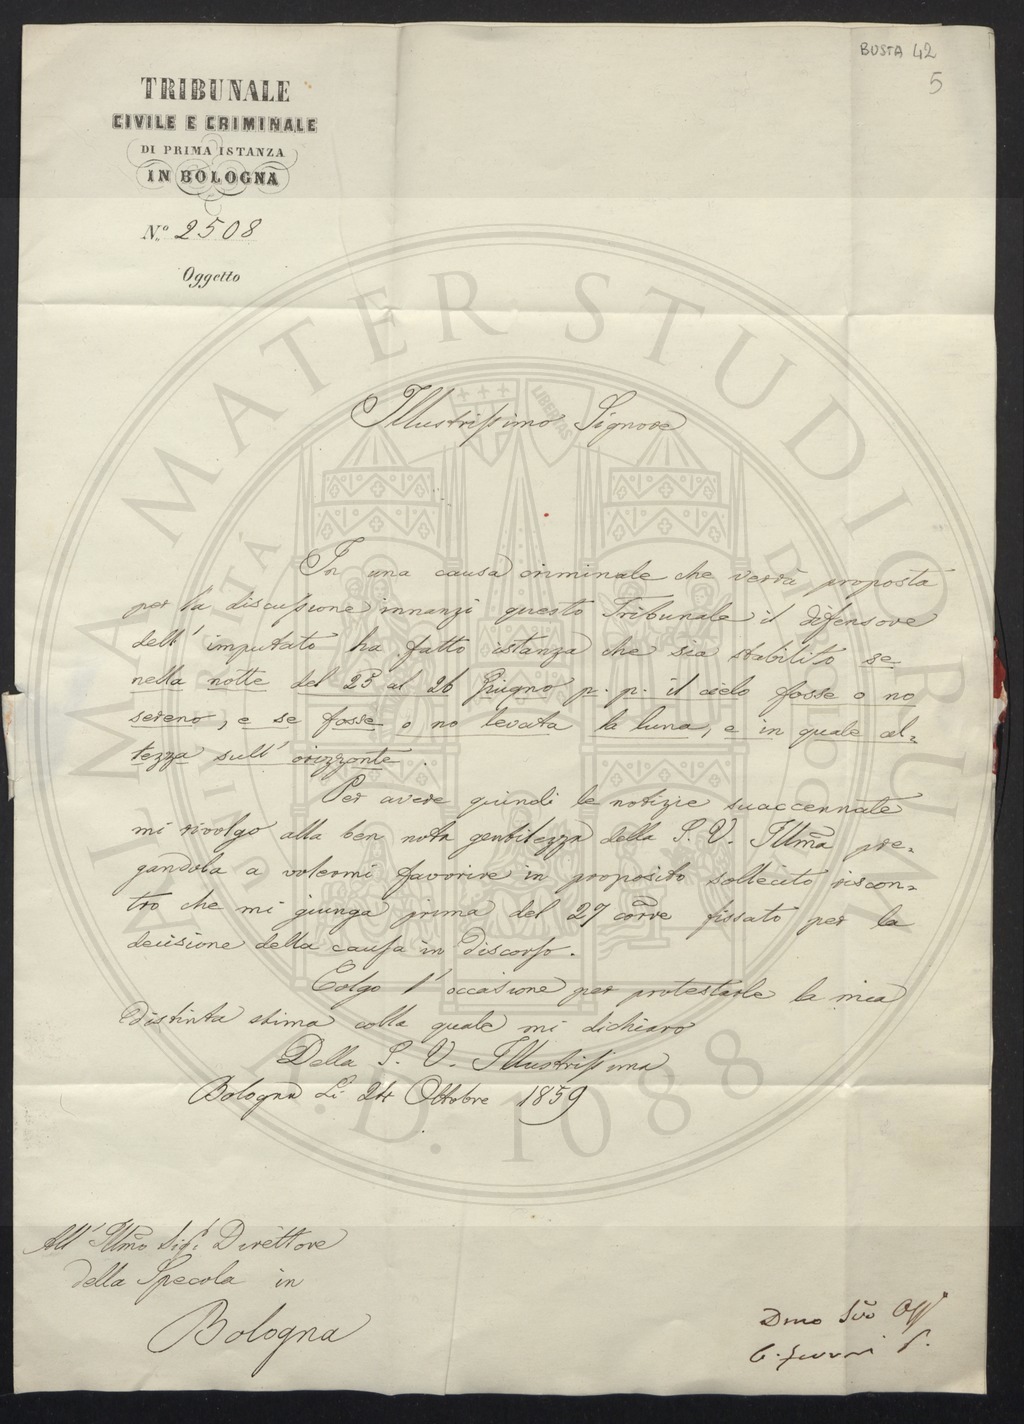 BUSTA 42
5
TRIBUNALE
CIVILE E CRIMINALE
DI PRIMA ISTANZA
IN BOLOGNA
N.º 2508
Oggetto
Illustrissimo Signore
In una causa criminale che verrà proposta
per la discussione innanzi questo Tribunale il difensore
dell' imputato ha fatto istanza che sia stabilito se
nella notte del 25 al 26 Giugno p. p. il cielo fosse o no
sereno, e se fosse o no levata la luna, e in quale al=
tezza sull' orizzonte.
Per avere quindi le notizie suaccennate
mi rivolgo alla ben nota gentilezza della S. V. Illma pre=
gandola a volermi favorire in proposito sollecito riscon=
tro che mi giunga prima del 27 corre fissato per la
decisione della causa in discorso.
Colgo l' occasione per protestarle la mia
distinta stima colla quale mi dichiaro
Della S. V. Illustrissima
Bologna Li 24 Ottobre 1859
All' Illmo Sigr Direttore
della Specola in
Bologna
Dmo
ALMA MATER STUDIORUM
UNIVERSITÀ DI BOLOGNA
LIBERTAS
A.D. 1088